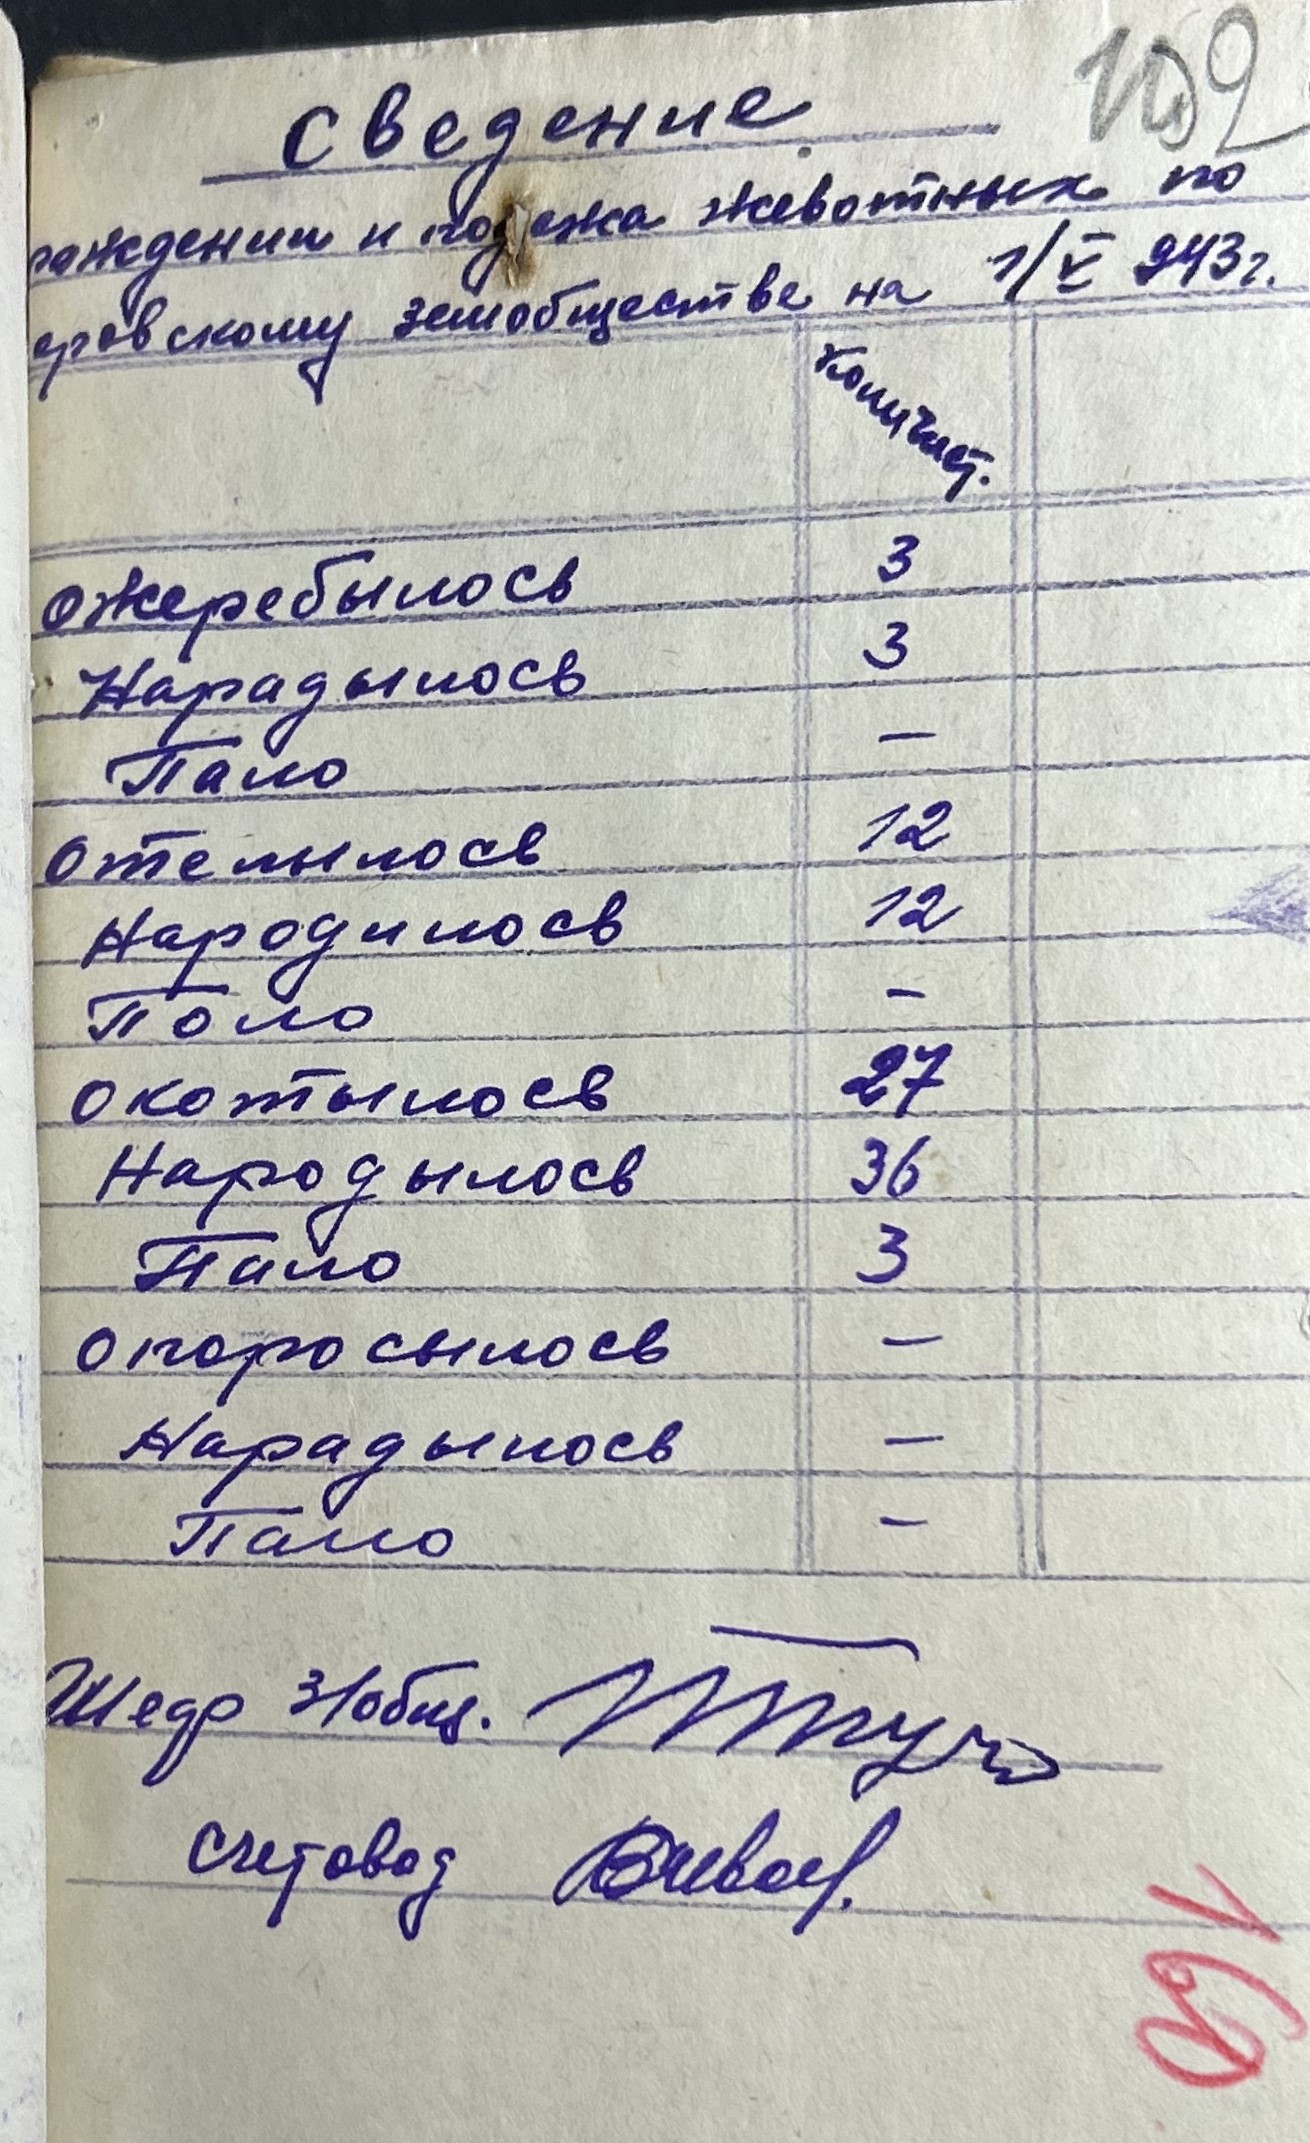 102
Сведение
раждении и подежа животных по
еровскому земобществе на 1/V 943г.
Количест.
Ожеребылось 3
Нарадылось 3
Пало —
Отелылось 12
Народилось 12
Поло —
Окотылось 27
Народылось 36
Пало 3
Опоросылось —
Нарадылось —
Пало —
З/общ.
Счетовод